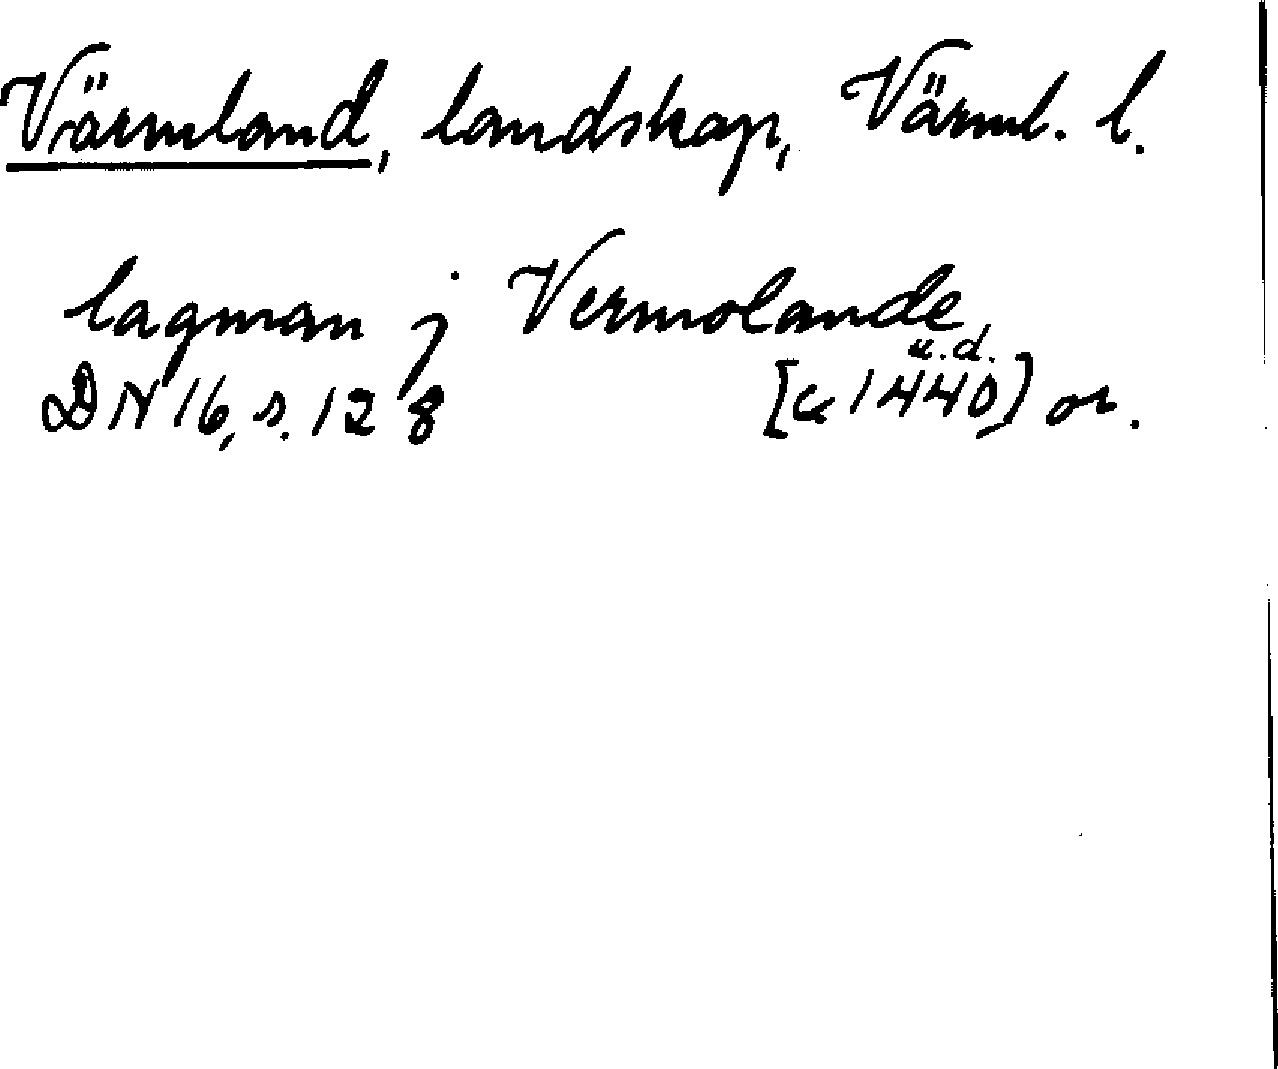 Värmland, landskap, Värml. l.
lagman j Vermolande,
u.d.
DN 16, s. 128 [c 1440] or.